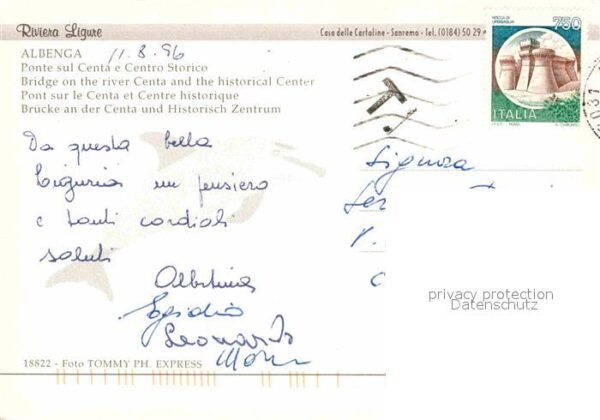 Riviera Ligure
Casa delle Cartoline - Sanremo - Tel. (0184) 50 29
ALBENGA 11.8.96
Ponte sul Centa e Centro Storico
Bridge on the river Centa and the historical Center
Pont sur le Centa et Centre historique
Brücke an der Centa und Historisch Zentrum
ROCCA DI URBISAGLIA
750
ITALIA
Da questa bella
Liguria un pensiero
e tanti cordiali
saluti
Albertina
Egidio
Leonardo
Signora
privacy protection
Datenschutz
18822 - Foto TOMMY PH. EXPRESS